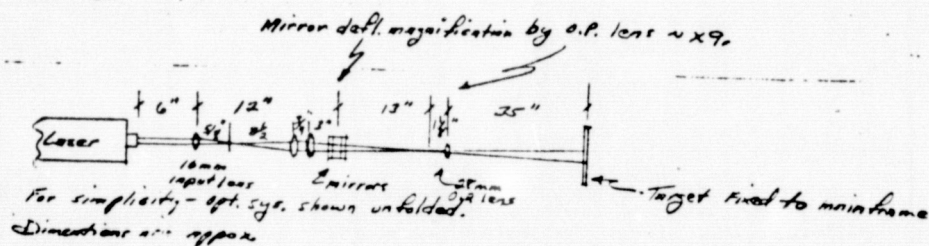 Mirror defl. magnification by O.P. lens ~ x9.
6" 12" 13" 35"
3"
Laser
16mm
input lens
mirrors
28mm
lens
Target Fixed to mainframe
For simplicity - opt. sys. shown unfolded.
Dimentions approx